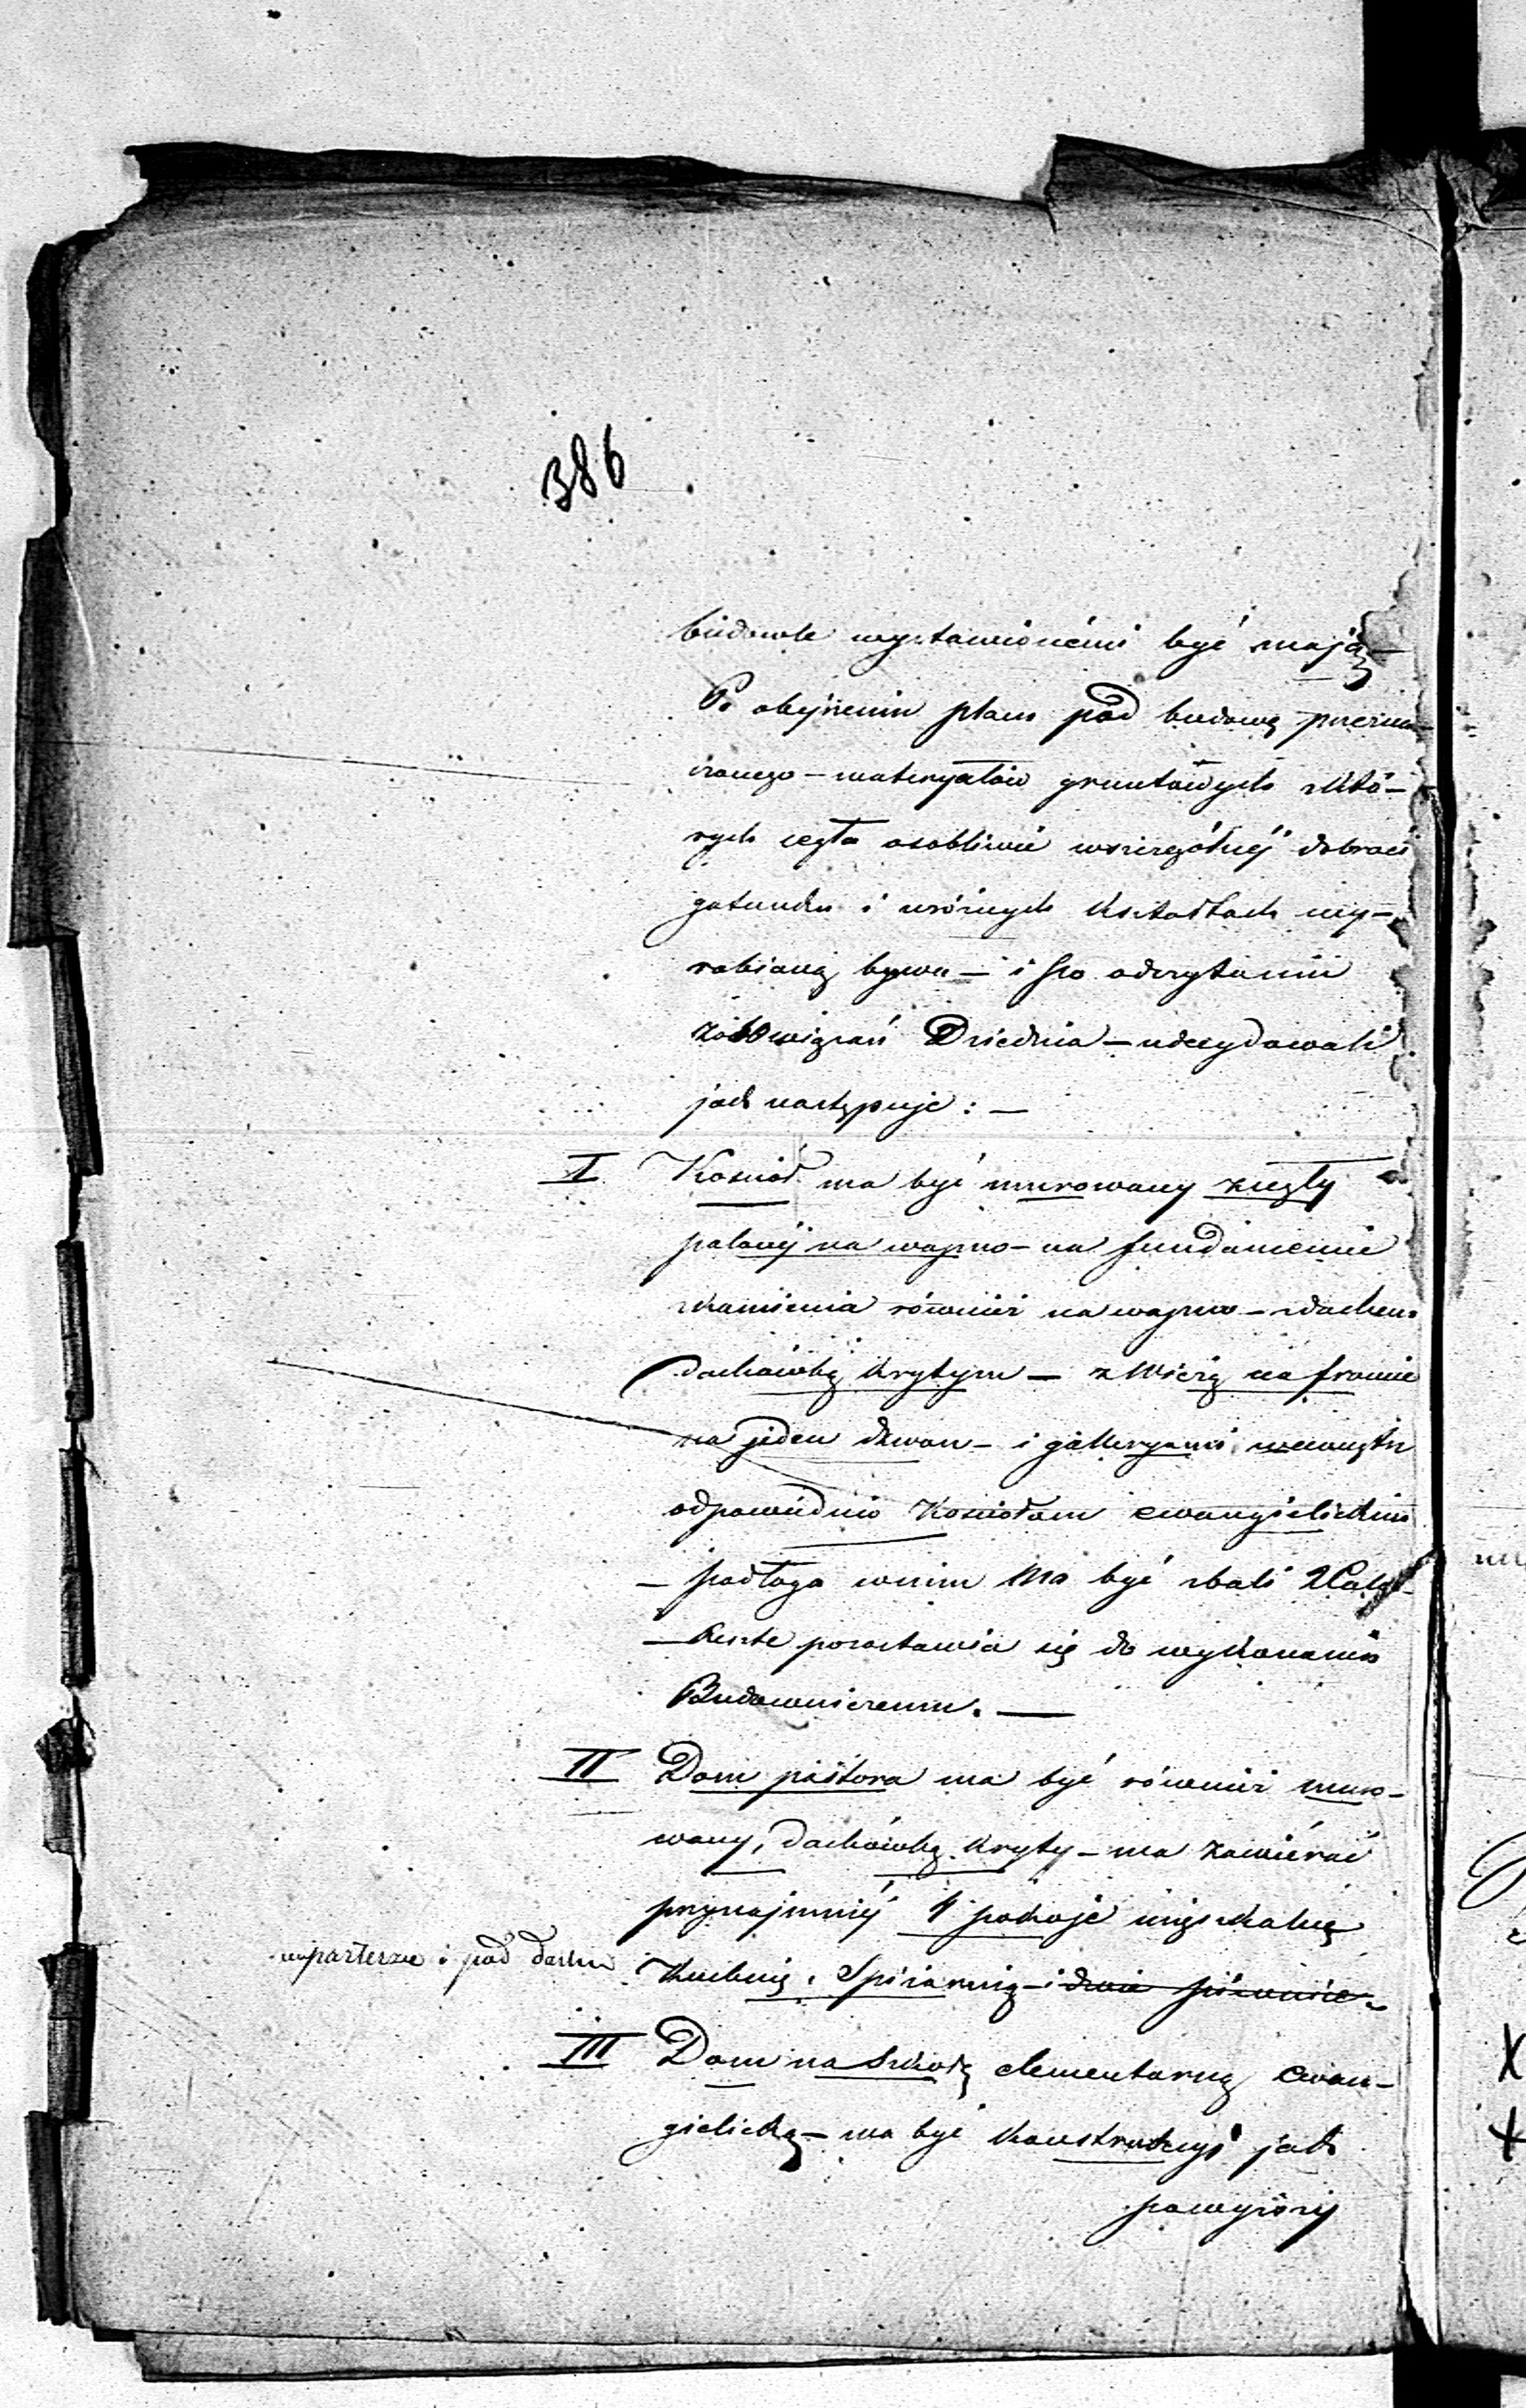 386
budowle wystawionemi być mają
Po obejrzeniu placu pod budowę przezna-
czonego – materyałów gruntowych z któ-
rych cegła osobliwie w szczególnéj dobroci
gatunku i w różnych kształtach wy-
rabianą bywa – i po odczytaniu
zobowiązań Dziedzica – udecydowali
jak następuje: –
I Kościoł ma być murowany z cegły
palonéj na wapno – na fundamencie
z kamienia również na wapno – z dachem
dachówką krytym – z Wieżą na froncie
na jeden dzwon – i galleryami wewnątrz
odpowiednio Kościołom ewangielickim
– podłoga w nim Ma być z bali
– Resztę pozostawia się do wykonania
Budowniczemu. –
II Dom pastora ma być również muro-
wany, dachówką kryty – ma zawiérać
przynajmniéj 4 pokoje mięszkalne
w parterze i pod dachem
Kuchnią, Spiżarnią – i dwie piwnice –
III Dom na Szkołę elementarną ewan-
gielicką – ma być konstrukcyi jak
powyżéj